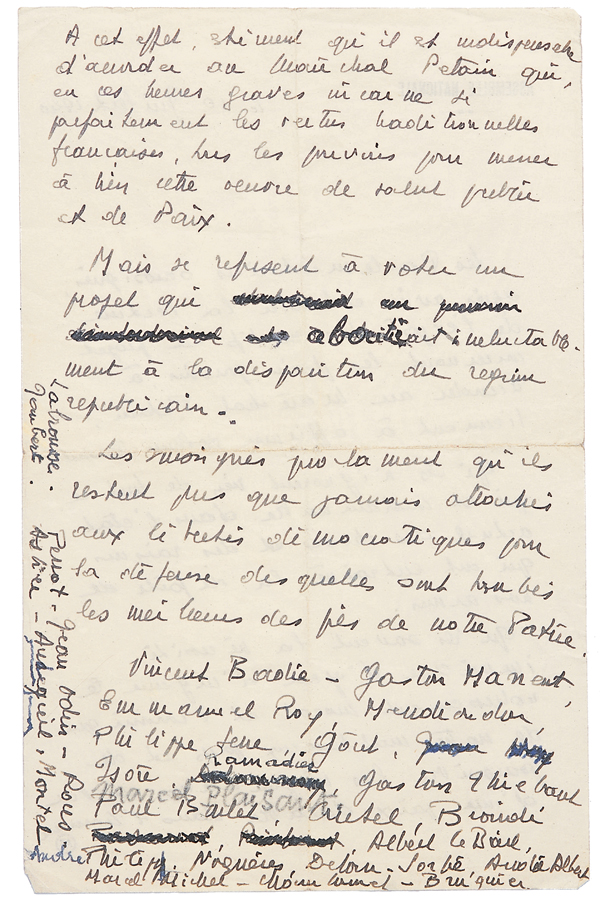 A cet effet, estiment qu'il est indispensable
d'accorder au Maréchal Pétain qui,
en ces heures graves incarne si
parfaitement les vertus traditionnelles
françaises, tous les pouvoirs pour mener
à bien cette oeuvre de salut public
et de Paix.
Mais se refusent à voter un
projet qui
aboutirait ineluctable-
ment à la disparition du régime
républicain.
Les soussignés proclament qu'ils
restent plus que jamais attachés
aux libertés démocratiques pour
la défense desquelles sont tombés
les meilleurs des fils de notre Patrie.
Vincent Badie - Gaston Manent,
Emmanuel Roy, Mendiondou,
Philippe Serre, Gout,
Isoré Ramadier, Gaston Thiebaut
Marcel Plaisant
Paul Boulet, Crutel, Biondi
Albert le Bail,
Philip, Noguères, Delom-Sorbé, Audré Albert
Marcel Michel - Bruguier
Labrousse.
Jaubert.
Perrot - Jean Odin - Rous
Astier - Audeguil, Montel
André